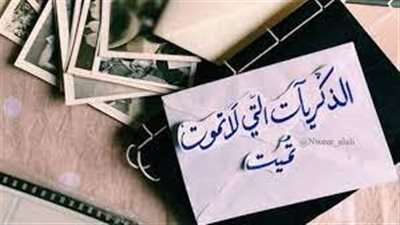 الذكريات التي لا تموت
تُميت
@Nweer_alali